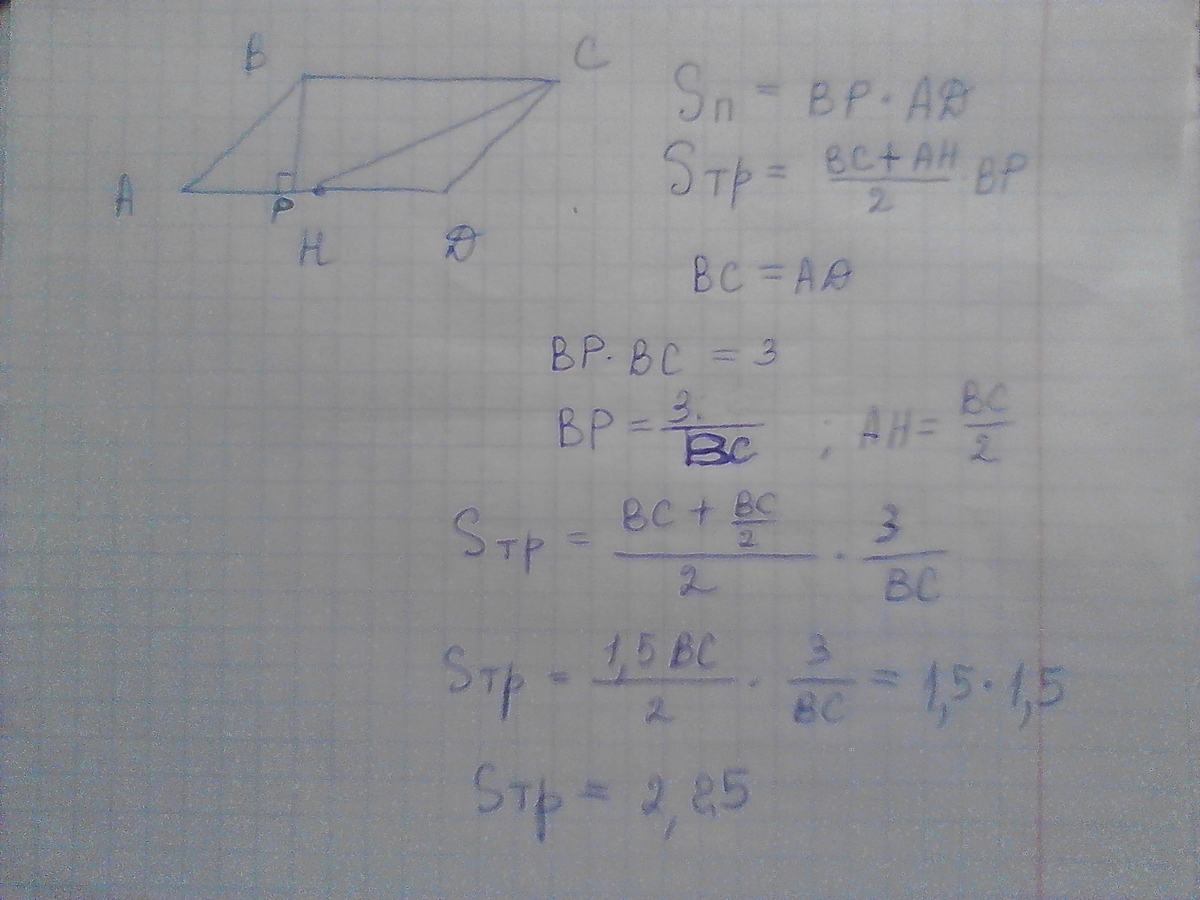 B C
A P H D
Sп = BP · AD
Sтр = (BC + AH)/2 · BP
BC = AD
BP · BC = 3
BP = 3/BC ; AH = BC/2
Sтр = (BC + BC/2)/2 · 3/BC
Sтр = 1,5 BC/2 · 3/BC = 1,5 · 1,5
Sтр = 2,25